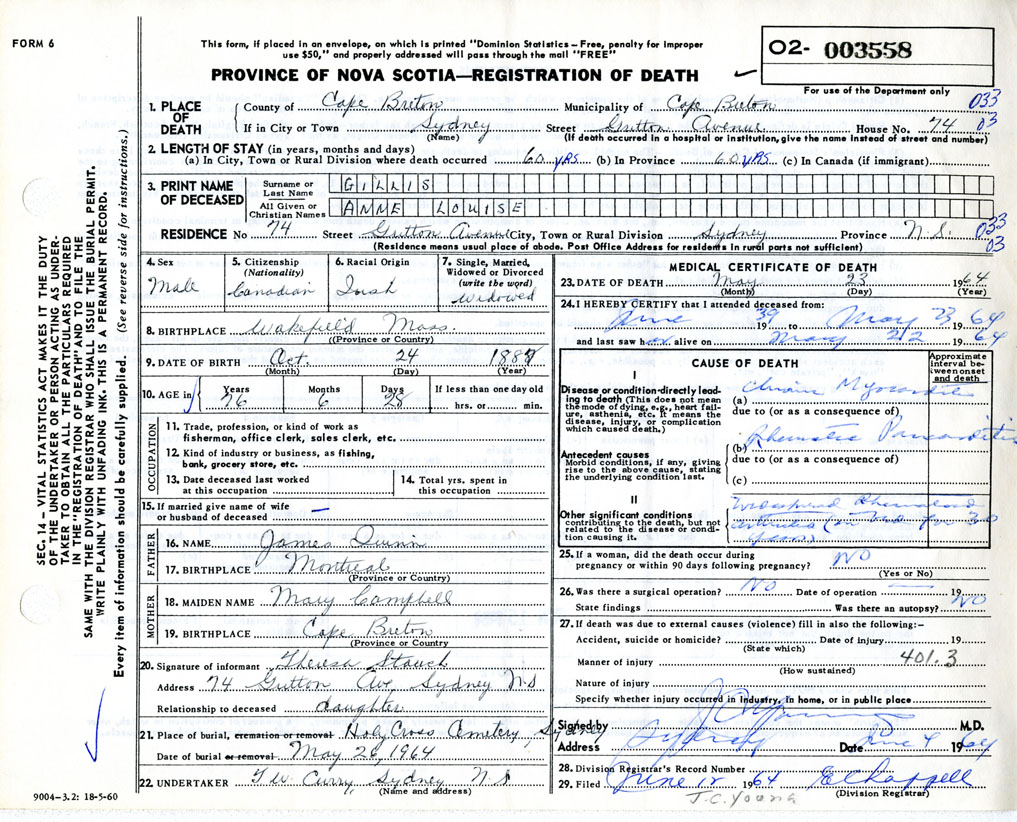 FORM 6
This form, if placed in an envelope, on which is printed "Dominion Statistics – Free, penalty for improper
use $50," and properly addressed will pass through the mail "FREE"
PROVINCE OF NOVA SCOTIA—REGISTRATION OF DEATH
02- 003558
For use of the Department only
SEC. 14 – VITAL STATISTICS ACT MAKES IT THE DUTY
OF THE UNDERTAKER OR PERSON ACTING AS UNDER-
TAKER TO OBTAIN ALL THE PARTICULARS REQUIRED
IN THE "REGISTRATION OF DEATH" AND TO FILE THE
SAME WITH THE DIVISION REGISTRAR WHO SHALL ISSUE THE BURIAL PERMIT.
WRITE PLAINLY WITH UNFADING INK. THIS IS A PERMANENT RECORD.
Every item of information should be carefully supplied. (See reverse side for instructions.)
1. PLACE OF DEATH
County of Cape Breton Municipality of Cape Breton 033
If in City or Town Sydney Street Avenue House No. 74 03
(Name) (If death occurred in a hospital or institution, give the name instead of street and number)
2. LENGTH OF STAY (in years, months and days)
(a) In City, Town or Rural Division where death occurred 60 yrs (b) In Province 60 yrs (c) In Canada (if immigrant)
3. PRINT NAME OF DECEASED
Surname or Last Name GILLIS
All Given or Christian Names ANNE LOUISE
RESIDENCE No 74 Street Avenue City, Town or Rural Division Sydney Province N.S. 033
03
(Residence means usual place of abode. Post Office Address for residents in rural parts not sufficient)
4. Sex
Male
5. Citizenship
(Nationality)
Canadian
6. Racial Origin
Irish
7. Single, Married,
Widowed or Divorced
(write the word)
Widowed
8. BIRTHPLACE Wakefield Mass.
(Province or Country)
9. DATE OF BIRTH Oct. 24 188
(Month) (Day) (Year)
10. AGE in
Years 76
Months 6
Days 28
If less than one day old
hrs. or min.
OCCUPATION
11. Trade, profession, or kind of work as
fisherman, office clerk, sales clerk, etc.
12. Kind of industry or business, as fishing,
bank, grocery store, etc.
13. Date deceased last worked
at this occupation
14. Total yrs. spent in
this occupation
15. If married give name of wife
or husband of deceased –
FATHER
16. NAME James Quinn
17. BIRTHPLACE Montreal
(Province or Country)
MOTHER
18. MAIDEN NAME Mary Campbell
19. BIRTHPLACE Cape Breton
(Province or Country)
20. Signature of informant Theresa
Address 74 Ave, Sydney N S
Relationship to deceased daughter
21. Place of burial, cremation or removal Holy Cross Cemetery, Sydney
Date of burial or removal May 26, 1964
22. UNDERTAKER T W Curry, Sydney N S
(Name and address)
MEDICAL CERTIFICATE OF DEATH
23. DATE OF DEATH May 23 1964
(Month) (Day) (Year)
24. I HEREBY CERTIFY that I attended deceased from:
June 1939 to May 23 1964
and last saw her alive on May 22 1964
CAUSE OF DEATH
Approximate
interval be-
tween onset
and death
I
Disease or condition directly lead-
ing to death (This does not mean
the mode of dying, e.g., heart fail-
ure, asthenia, etc. It means the
disease, injury, or complication
which caused death.)
(a) Chronic Myocarditis
due to (or as a consequence of)
(b) Rheumatic
due to (or as a consequence of)
(c)
Antecedent causes
Morbid conditions, if any, giving
rise to the above cause, stating
the underlying condition last.
II
Other significant conditions
contributing to the death, but not
related to the disease or condi-
tion causing it.
Widespread Rheumatoid
arthritis (in bed for 30
years)
25. If a woman, did the death occur during
pregnancy or within 90 days following pregnancy? NO
(Yes or No)
26. Was there a surgical operation? NO Date of operation — 19
State findings Was there an autopsy? NO
27. If death was due to external causes (violence) fill in also the following:–
Accident, suicide or homicide? Date of injury 19
(State which)
Manner of injury 401.3
(How sustained)
Nature of injury
Specify whether injury occurred in industry, in home, or in public place
Signed by M.D.
Address Sydney Date June 4 1964
28. Division Registrar's Record Number
29. Filed June 12 1964 E Chappell
(Division Registrar)
J.C. Young
9004–3.2: 18-5-60